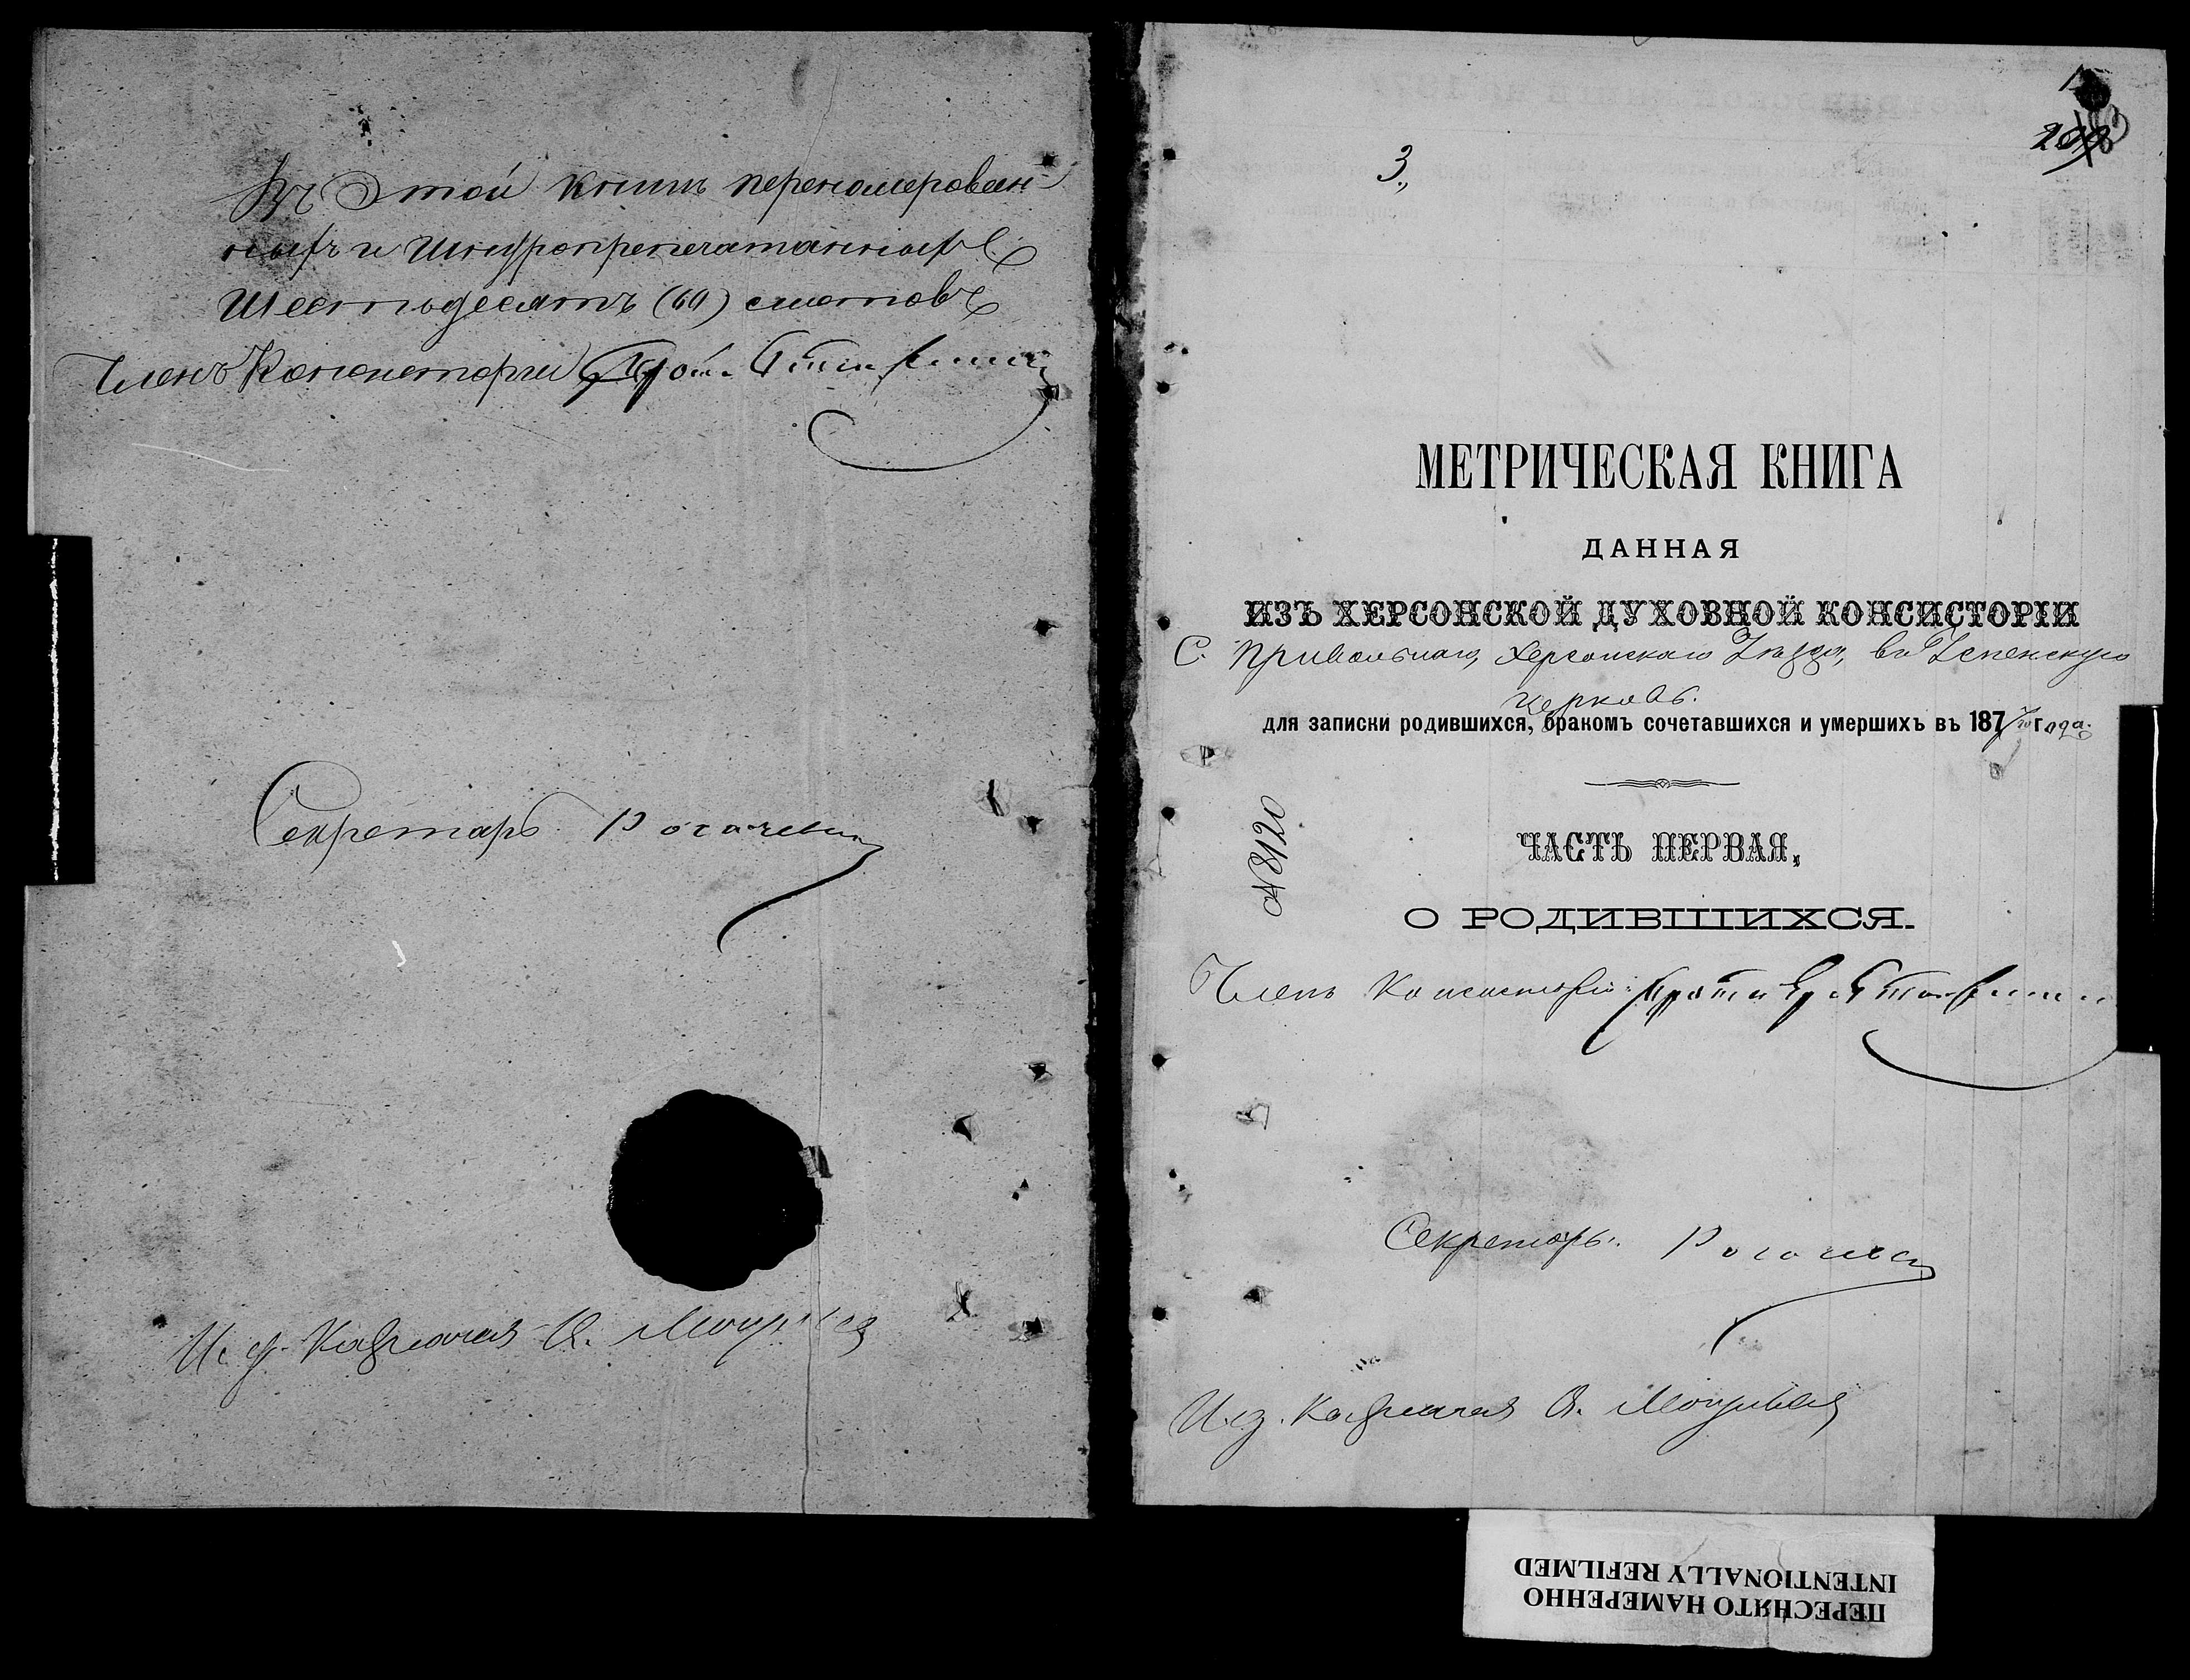 Въ Этой книгѣ перенумерован-
ныхъ и Шнуропрепечатанныхъ
Шестьдесятъ (60) листовъ
Членъ Консисторіи
Секретарь
И. д. Казначея
1
3.,
МЕТРИЧЕСКАЯ КНИГА
ДАННАЯ
ИЗЪ ХЕРСОНСКОЙ ДУХОВНОЙ КОНСИСТОРІИ
С. Привольнаго, Херсонскаго Уѣзда, въ Успенскую
церковь.
для записки родившихся, бракомъ сочетавшихся и умершихъ въ 187 года.
№ 8120
ЧАСТЬ ПЕРВАЯ,
О РОДИВШИХСЯ.
Членъ Консисторіи
Секретарь
И. д. Казначея
ПЕРЕСНЯТО НАМЕРЕННО
INTENTIONALLY REFILMED